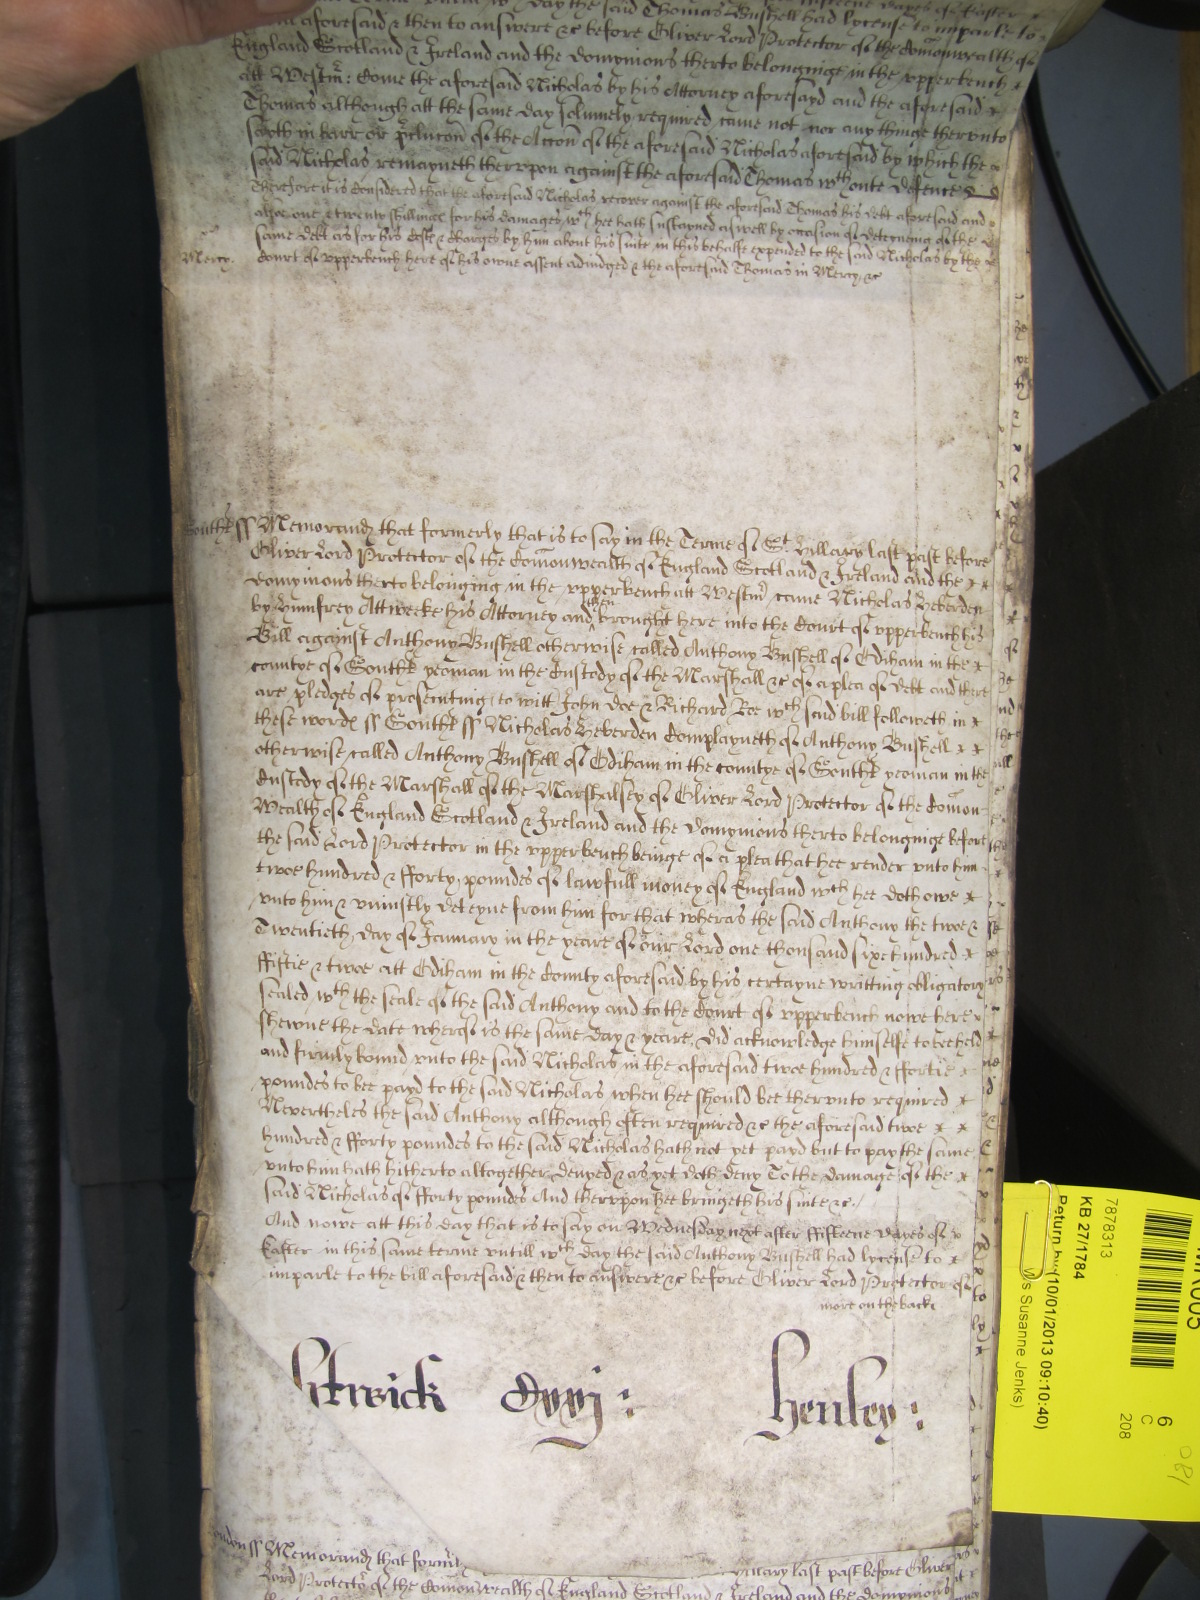 day the said Thomas Bushell had lycense to imparle to
aforesaid & then to answere &c before Oliver Lord Protector of the Comonwealth of
England Scotland & Ireland and the domynions therto belonginge in the vpperbench
att Westm: Come the aforesaid Nicholas by his Attorney aforesayd and the aforesaid
Thomas although att the same day solemnely required came not nor any thinge thervnto
sayth in barr or preclucon of the Accon of the aforesaid Nicholas aforesaid by which the
said Nicholas remayneth thervpon against the aforesaid Thomas wth oute defence &
Therefore it is Considered that the aforesaid Nicholas recover against the aforesaid Thomas his debt aforesaid and
alsoe one & twenty shillings for his damages wch hee hath susteyned aswell by occasion of deteyneing of the
same debt as for his Costs & Charges by him about his suite in this behalfe expended to the said Nicholas by the
Mercy. Court of vpperbench here of his owne assent adiudged & the aforesaid Thomas in Mercy, &c
Southt ss Memorand that formerly that is to say in the Terme of St. Hillary last past before
Oliver Lord Protector of the Comonwealth of England Scotland & Ireland and the
domynions therto belonging in the vpperbench att Westm came Nicholas Heberden
by Humfrey Attweeke his Attorney and then brought here into the Court of vpperbench his
Bill against Anthony Bushell otherwise called Anthony Bushell of Odiham in the
countye of Southt yeoman in the Custody of the Marshall &c of a plea of debt and there
are pledges of prosecuting to witt John Doe & Richard Roe wch said bill followeth in
these words ss Southt ss Nicholas Heberden Complayneth of Anthony Bushell
otherwise called Anthony Bushell of Odiham in the countye of Southt yeoman in the
Custody of the Marshall of the Marshalsey of Oliver Lord Protector of the Comon
Wealth of England Scotland & Ireland and the Domynions therto belonginge before
the said Lord Protector in the vpperbench beinge of a plea that hee render vnto him
twoe hundred & fforty poundes of lawfull money of England wch hee doth owe
vnto him & vniustly deteyne from him for that wheras the said Anthony the twoe &
Twentieth day of January in the yeare of our Lord one thousand sixe hundred
fiftie & twoe att Odiham in the County aforesaid by his certayne writting obligatory
sealed wth the seale of the said Anthony and to the Court of vpperbench nowe here
shewne the date wherof is the same day & yeare, did acknowledge himselfe to bee held
and firmly bound vnto the said Nicholas in the aforesaid twoe hundred & ffortie
poundes to bee payd to the said Nicholas when hee should bee thervnto required
Nevertheles the said Anthony although often required &c the aforesaid twoe
hundred & fforty poundes to the said Nicholas hath not yet payd but to pay the same
vnto him hath hitherto altogether denyed & as yet doth deny To the damage of the
said Nicholas of fforty poundes And thervpon hee bringeth his suite &c./
And nowe att this day that is to say on Wednesday next after fifteene dayes of
Easter in this same terme vntill wch day the said Anthony Bushell had lycense to
imparle to the bill aforesaid & then to answere &c before Oliver Lord Protector of
more on the backe
Henley :
ss Memorand that form
Hillary last past before Oliver
Lord Protector of the Comonwealth of England Scotland & Ireland and the domynions
7878313
KB 27/1784
Return by (10/01/2013 09:10:40)
s Susanne Jenks)
6
C
208